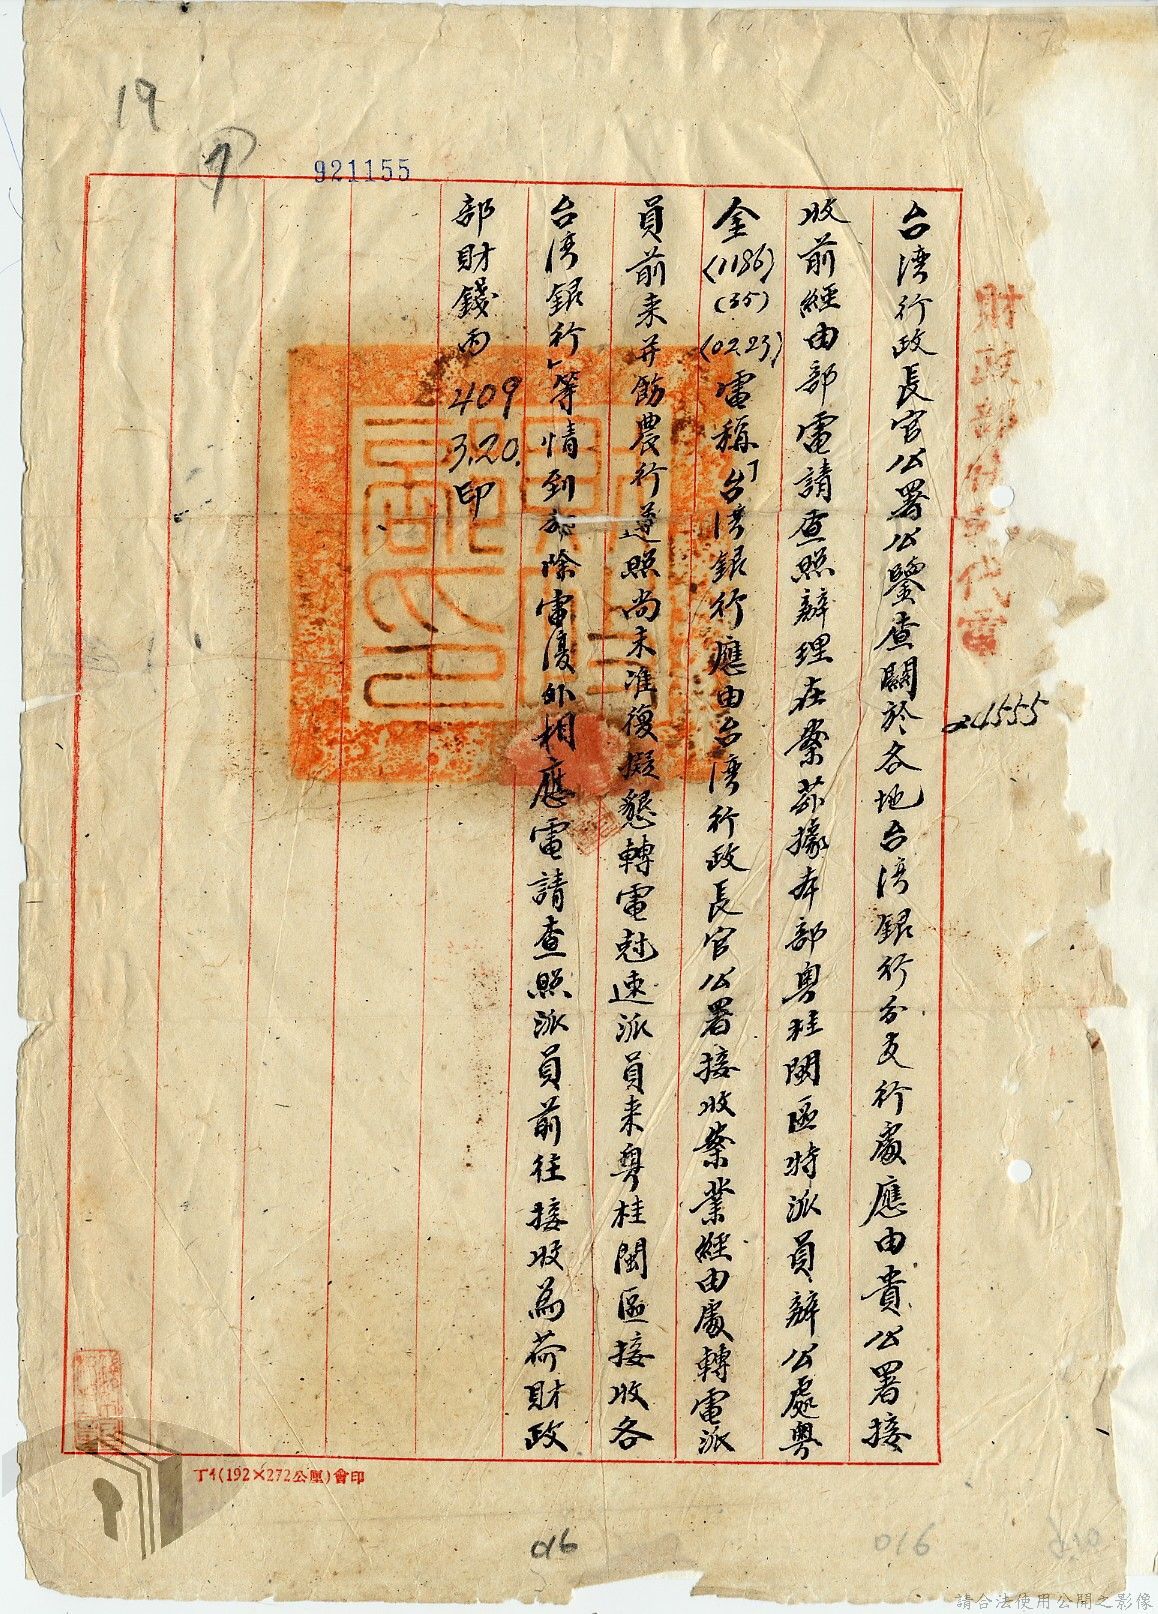 19
921155
財政部快郵代電
24555
台湾行政長官公署公鑒查關於各地台湾銀行分支行處應由貴公署接
收前經由部電請查照辦理在案茲據本部粵桂閩區特派員辦公處粵
金(1186)(35)(02.23)電稱「台湾銀行應由台湾行政長官公署接收案業經由處轉電派
員前来并飭農行遵照尚未准復擬懇轉電尅速派員来粵桂閩區接收各
台湾銀行」等情到部除電復外相應電請查照派員前往接收為荷財政
部財錢丙409 3.20.印
丁4(192×272公厘)會印
016
016
請合法使用公開之影像